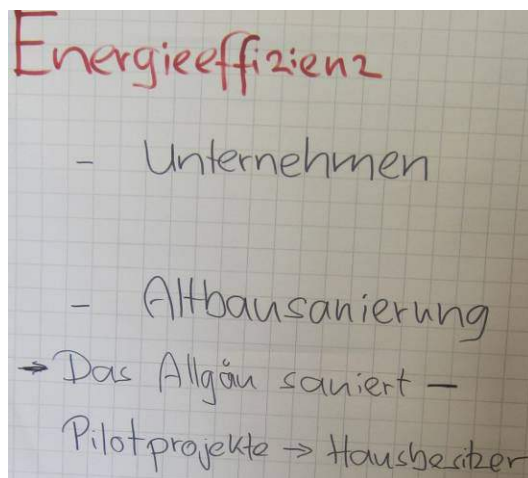 Energieeffizienz
- Unternehmen
- Altbausanierung
→ Das Allgäu saniert -
Pilotprojekte → Hausbesitzer